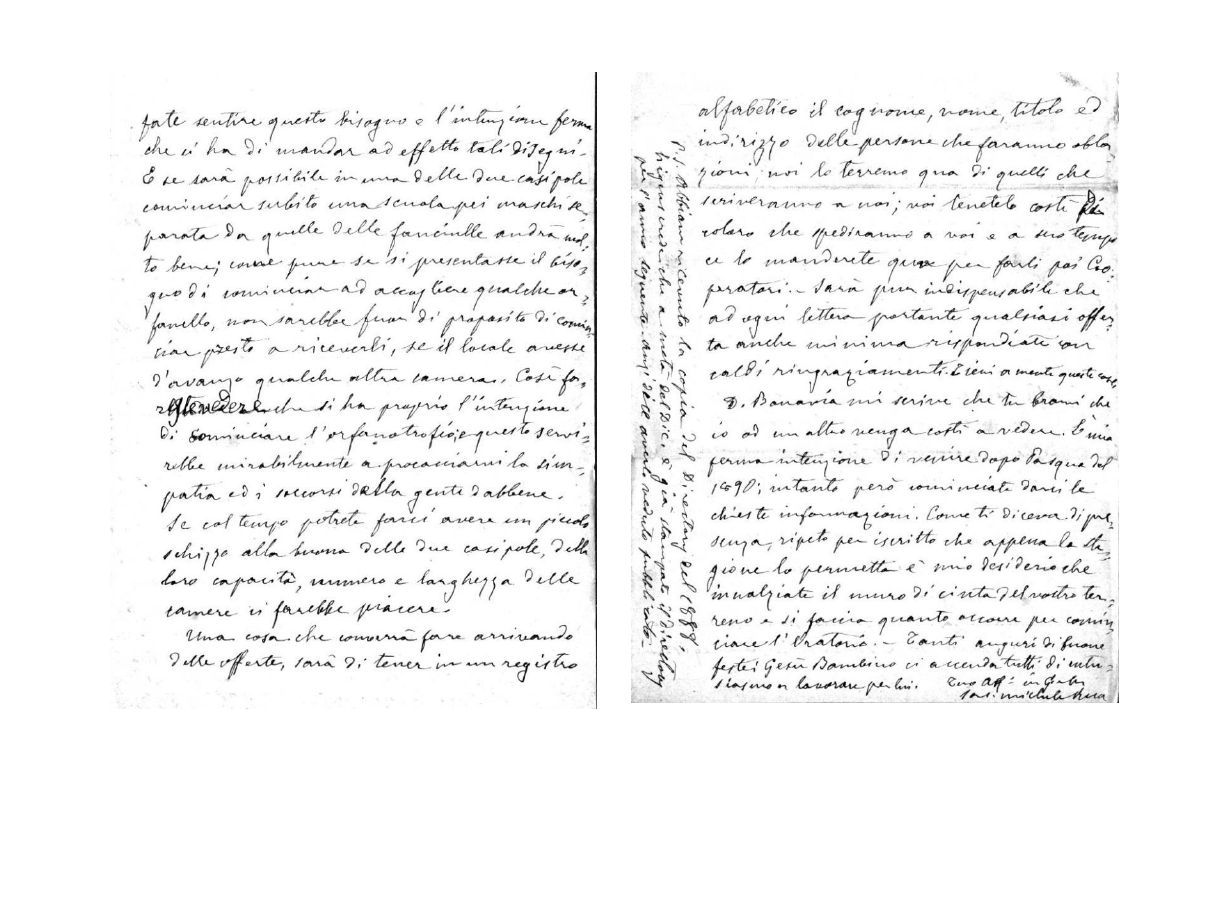 fate sentire questo bisogno e l'intenzione ferma
che ci ha di mandar ad effetto tali disegni.
E se sarà possibile in una delle due casipole
cominciar subito una scuola pei maschi se-
parata da quelle delle fanciulle andrà mol-
to bene; come pure se si presentasse il biso-
gno di cominciar ad accogliere qualche or-
fanello, non sarebbe fuor di proposito di comin-
ciar presto a riceverli, se il locale avesse
d'avanzo qualche altra camera. Così fa-
reste vedere che si ha proprio l'intenzione
di cominciare l'orfanotrofio; e questo servi-
rebbe mirabilmente a procacciarvi la sim-
patia ed i soccorsi della gente dabbene.
Se col tempo potrete farci avere un piccolo
schizzo alla buona delle due casipole, della
loro capacità, numero e larghezza delle
camere ci farebbe piacere.
Una cosa che converrà fare arrivando
delle offerte, sarà di tener in un registro
alfabetico il cognome, nome, titolo ed
indirizzo delle persone che faranno obla-
zioni; noi lo terremo qua di quelli che
scriveranno a noi; voi tenetelo costì di
coloro che spediranno a voi e a suo tempo
ce lo manderete qua per farli poi Coo-
peratori. - Sarà pur indispensabile che
ad ogni lettera portante qualsiasi offer-
ta anche minima rispondiate con
caldi ringraziamenti. Tieni a mente queste cose.
D. Bonavia mi scrive che tu brami che
io od un altro venga costì a vedere. È mia
ferma intenzione di venire dopo Pasqua del
1890; intanto però cominciate darci le
chieste informazioni. Come ti diceva di pre-
senza, ripeto per iscritto che appena la sta-
gione lo permetta è mio desiderio che
innalziate il muro di cinta del vostro ter-
reno e si faccia quanto occorre per comin-
ciare l'Oratorio. - Tanti auguri di buone
feste; Gesù Bambino ci accenda tutti di entu-
siasmo a lavorare per lui. Tuo Aff.º in G. e M.
Sac. Michele Rua
P.S. Abbiam ricevuto la copia del Directory del 1888.
bisogna vedere che a metà del Dic. è già stampato il Directory
per l'anno seguente, anzi da averlo veduto pubblicato.